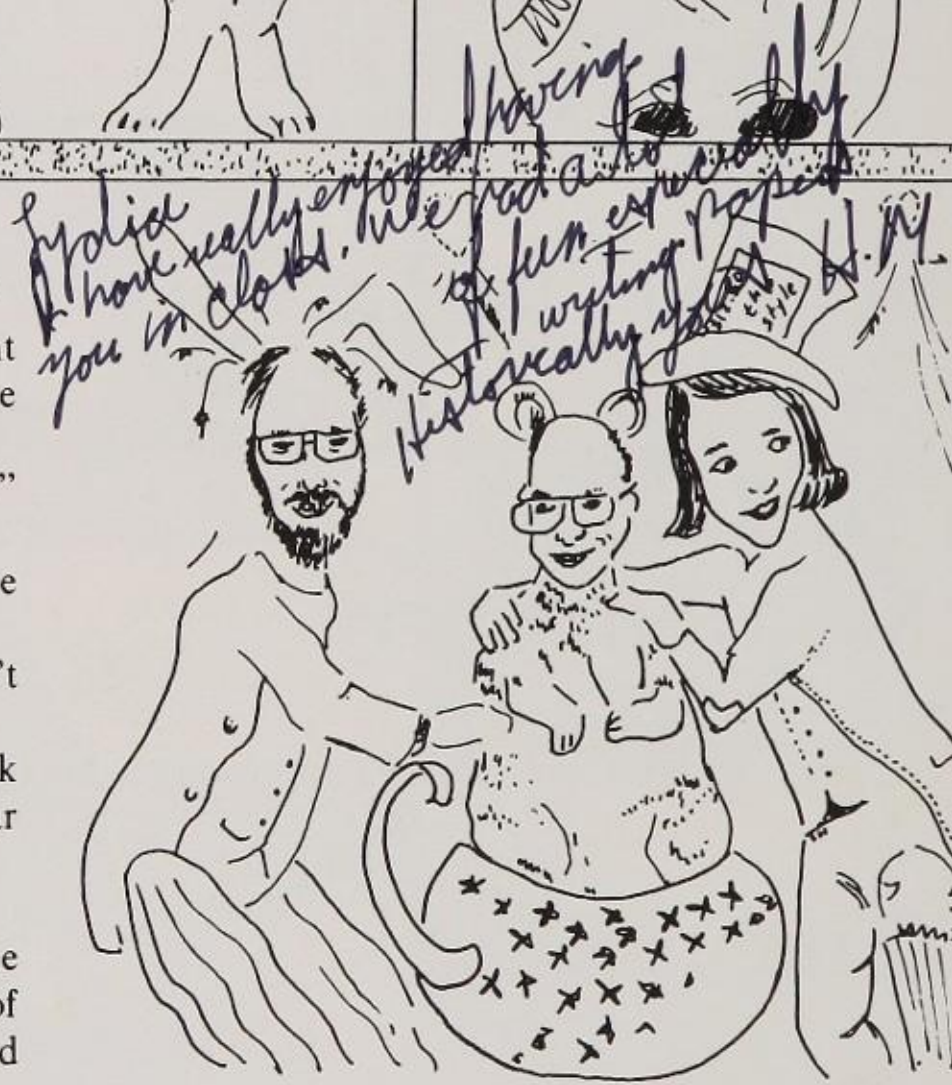 Lydia
I have really enjoyed having
you in class. We had a lot
of fun especially
writing papers
Historically yours H. M
style
t
e
”
e
’t
k
r
e
of
d